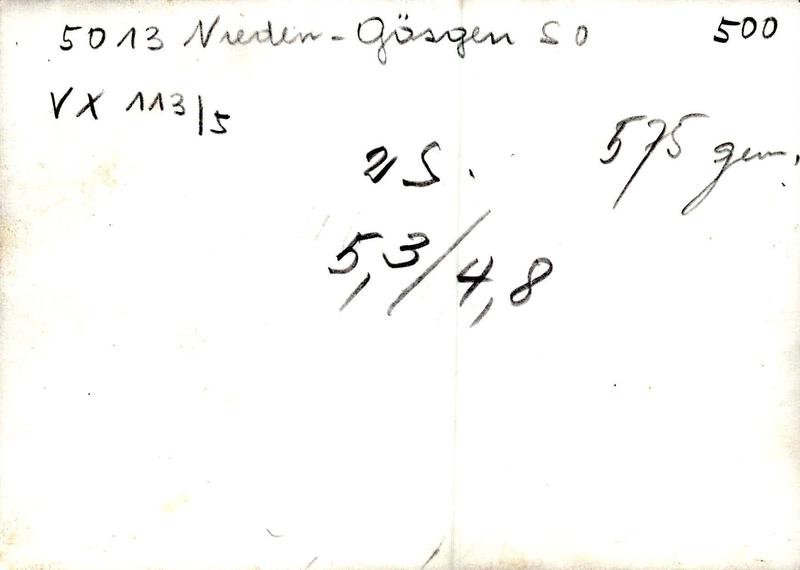 5013 Nieder-Gösgen SO 500
VX 113/5
2 S. 575 gem.
5,3/4,8